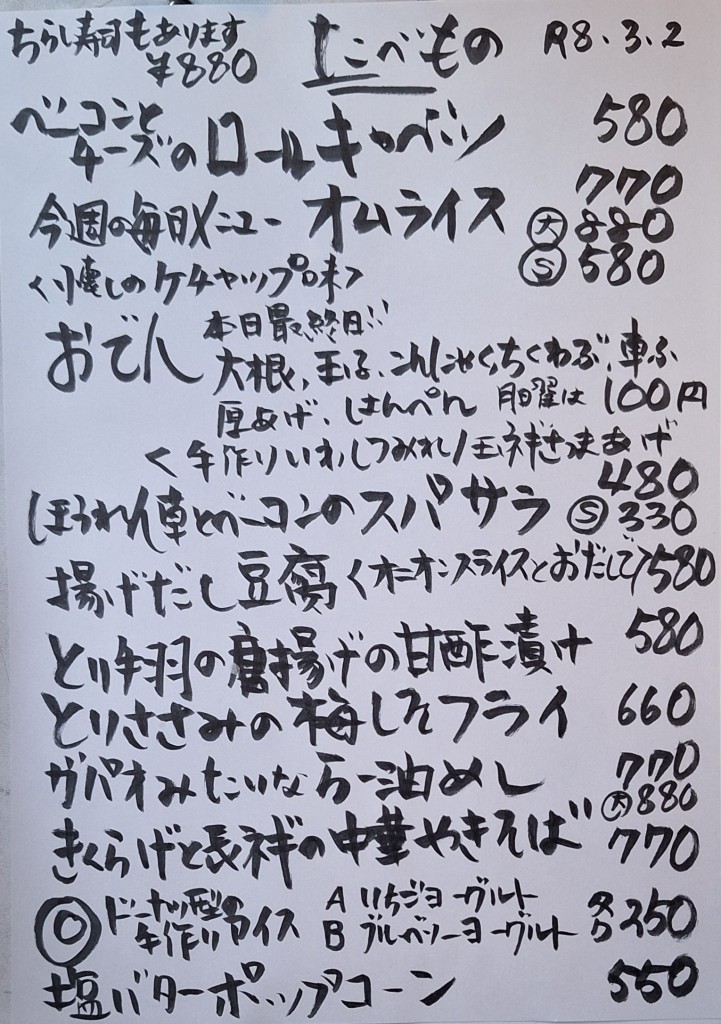 ちらし寿司もあります
¥880
たべもの R8.3.2
ベーコンと
チーズのロールキャベツ 580
今週の毎日メニュー オムライス 770
大 880
S 580
<懐しのケチャップ味>
おでん 本日最終日!!
大根、玉子、こんにゃく、ちくわぶ、車ふ
厚あげ、はんぺん 月曜は 100円
<手作りいわしつみれ/玉ネギさつまあげ
ほうれん草とベーコンのスパサラ 480
S 330
揚げだし豆腐<オニオンスライスとおだしで>580
とり手羽の唐揚げの甘酢漬け 580
とりささみの梅しそフライ 660
ガパオみたいならー油めし 770
大 880
きくらげと長ネギの中華やきそば 770
ドーナッツ型の
手作りアイス
A いちごヨーグルト
B ブルーベリーヨーグルト 各 350
塩バターポップコーン 550